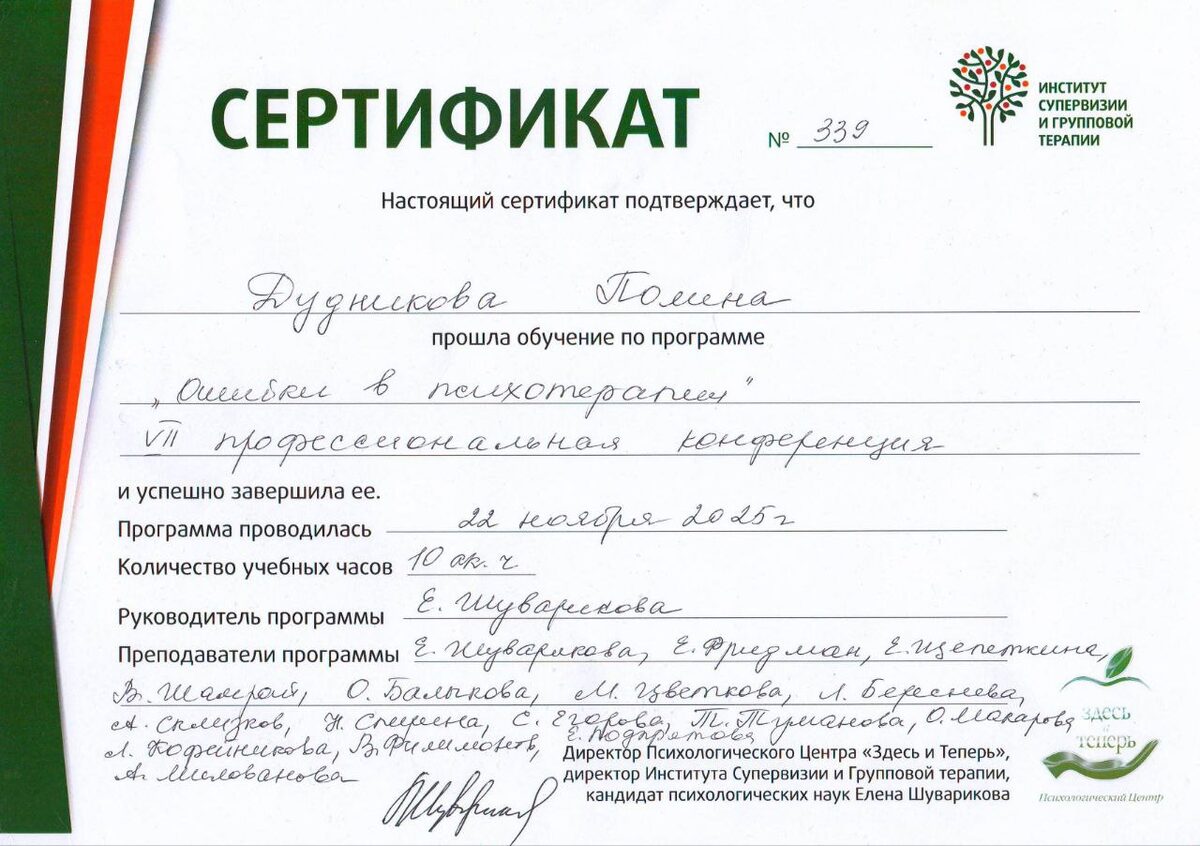 СЕРТИФИКАТ
№ 339
ИНСТИТУТ
СУПЕРВИЗИИ
И ГРУППОВОЙ
ТЕРАПИИ
Настоящий сертификат подтверждает, что
Дудникова Полина
прошла обучение по программе
„Ошибки в психотерапии"
VII профессиональная конференция
и успешно завершила ее.
Программа проводилась 22 ноября 2025г
Количество учебных часов 10 ак. ч
Руководитель программы Е. Шуварикова
Преподаватели программы Е. Шуварикова, Е. Фридман, Е. Щепеткина,
В. Шамрай, О. Балыкова, М. Цветкова, Л. Береснева,
А. Склизков, Н. Спирина, С. Егорова, Т. Туманова, О. Макарова
Е. Подпрятова
Л. Кофейникова, В. Филимонов,
А. Милованова
Директор Психологического Центра «Здесь и Теперь»,
директор Института Супервизии и Групповой терапии,
кандидат психологических наук Елена Шуварикова
здесь
и
теперь
Психологический Центр